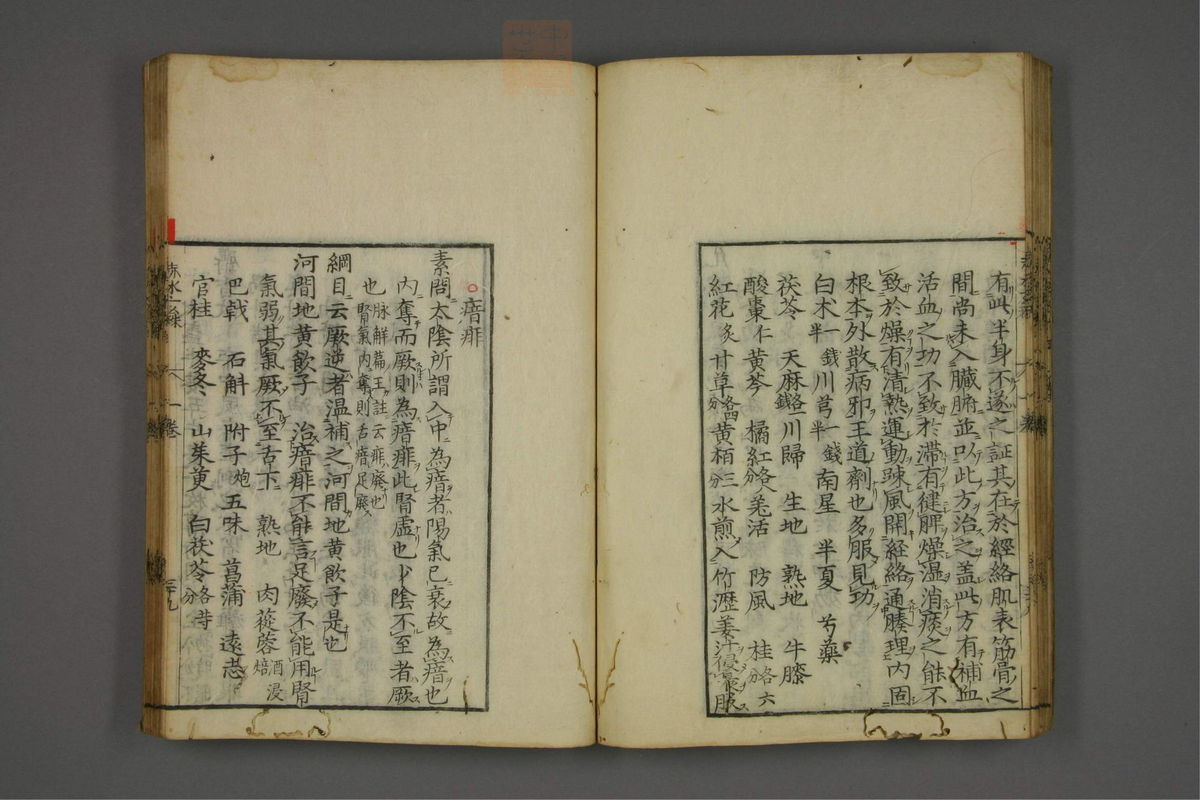 有此半身不遂之証其在於經絡肌表筋骨之
間尚未入臟腑並以此方治之盖此方有補血
活血之功不致於滞有健脾燥湿消痰之能不
致於燥有清熱運動疎風開経絡通腠理内固
根本外散病邪王道劑也多服見功
白朮一錢半川芎一錢半南星 半夏 芍藥
茯苓 天麻各一錢川歸 生地 熟地 牛膝
酸棗仁 黄芩 橘紅各八分羗活 防風 桂各六分
紅花 炙甘草各四分黄栢三分水煎入竹瀝姜汁侵晨服
瘖痱
素問太陰所謂入中為瘖者陽氣已衰故為瘖也
内奪而厥則為瘖痱此腎虚也少陰不至者厥
也脉解篇王註云痱廢也
腎氣内奪則舌瘖足廢
綱目云厥逆者温補之河間地黄飲子是也
河間地黄飲子 治瘖痱不能言足廢不能用腎
氣弱其氣厥不至舌下 熟地 肉蓯蓉酒浸焙
巴戟 石斛 附子炮 五味 菖蒲 遠志
官桂 麥冬 山茱萸 白茯苓各等分